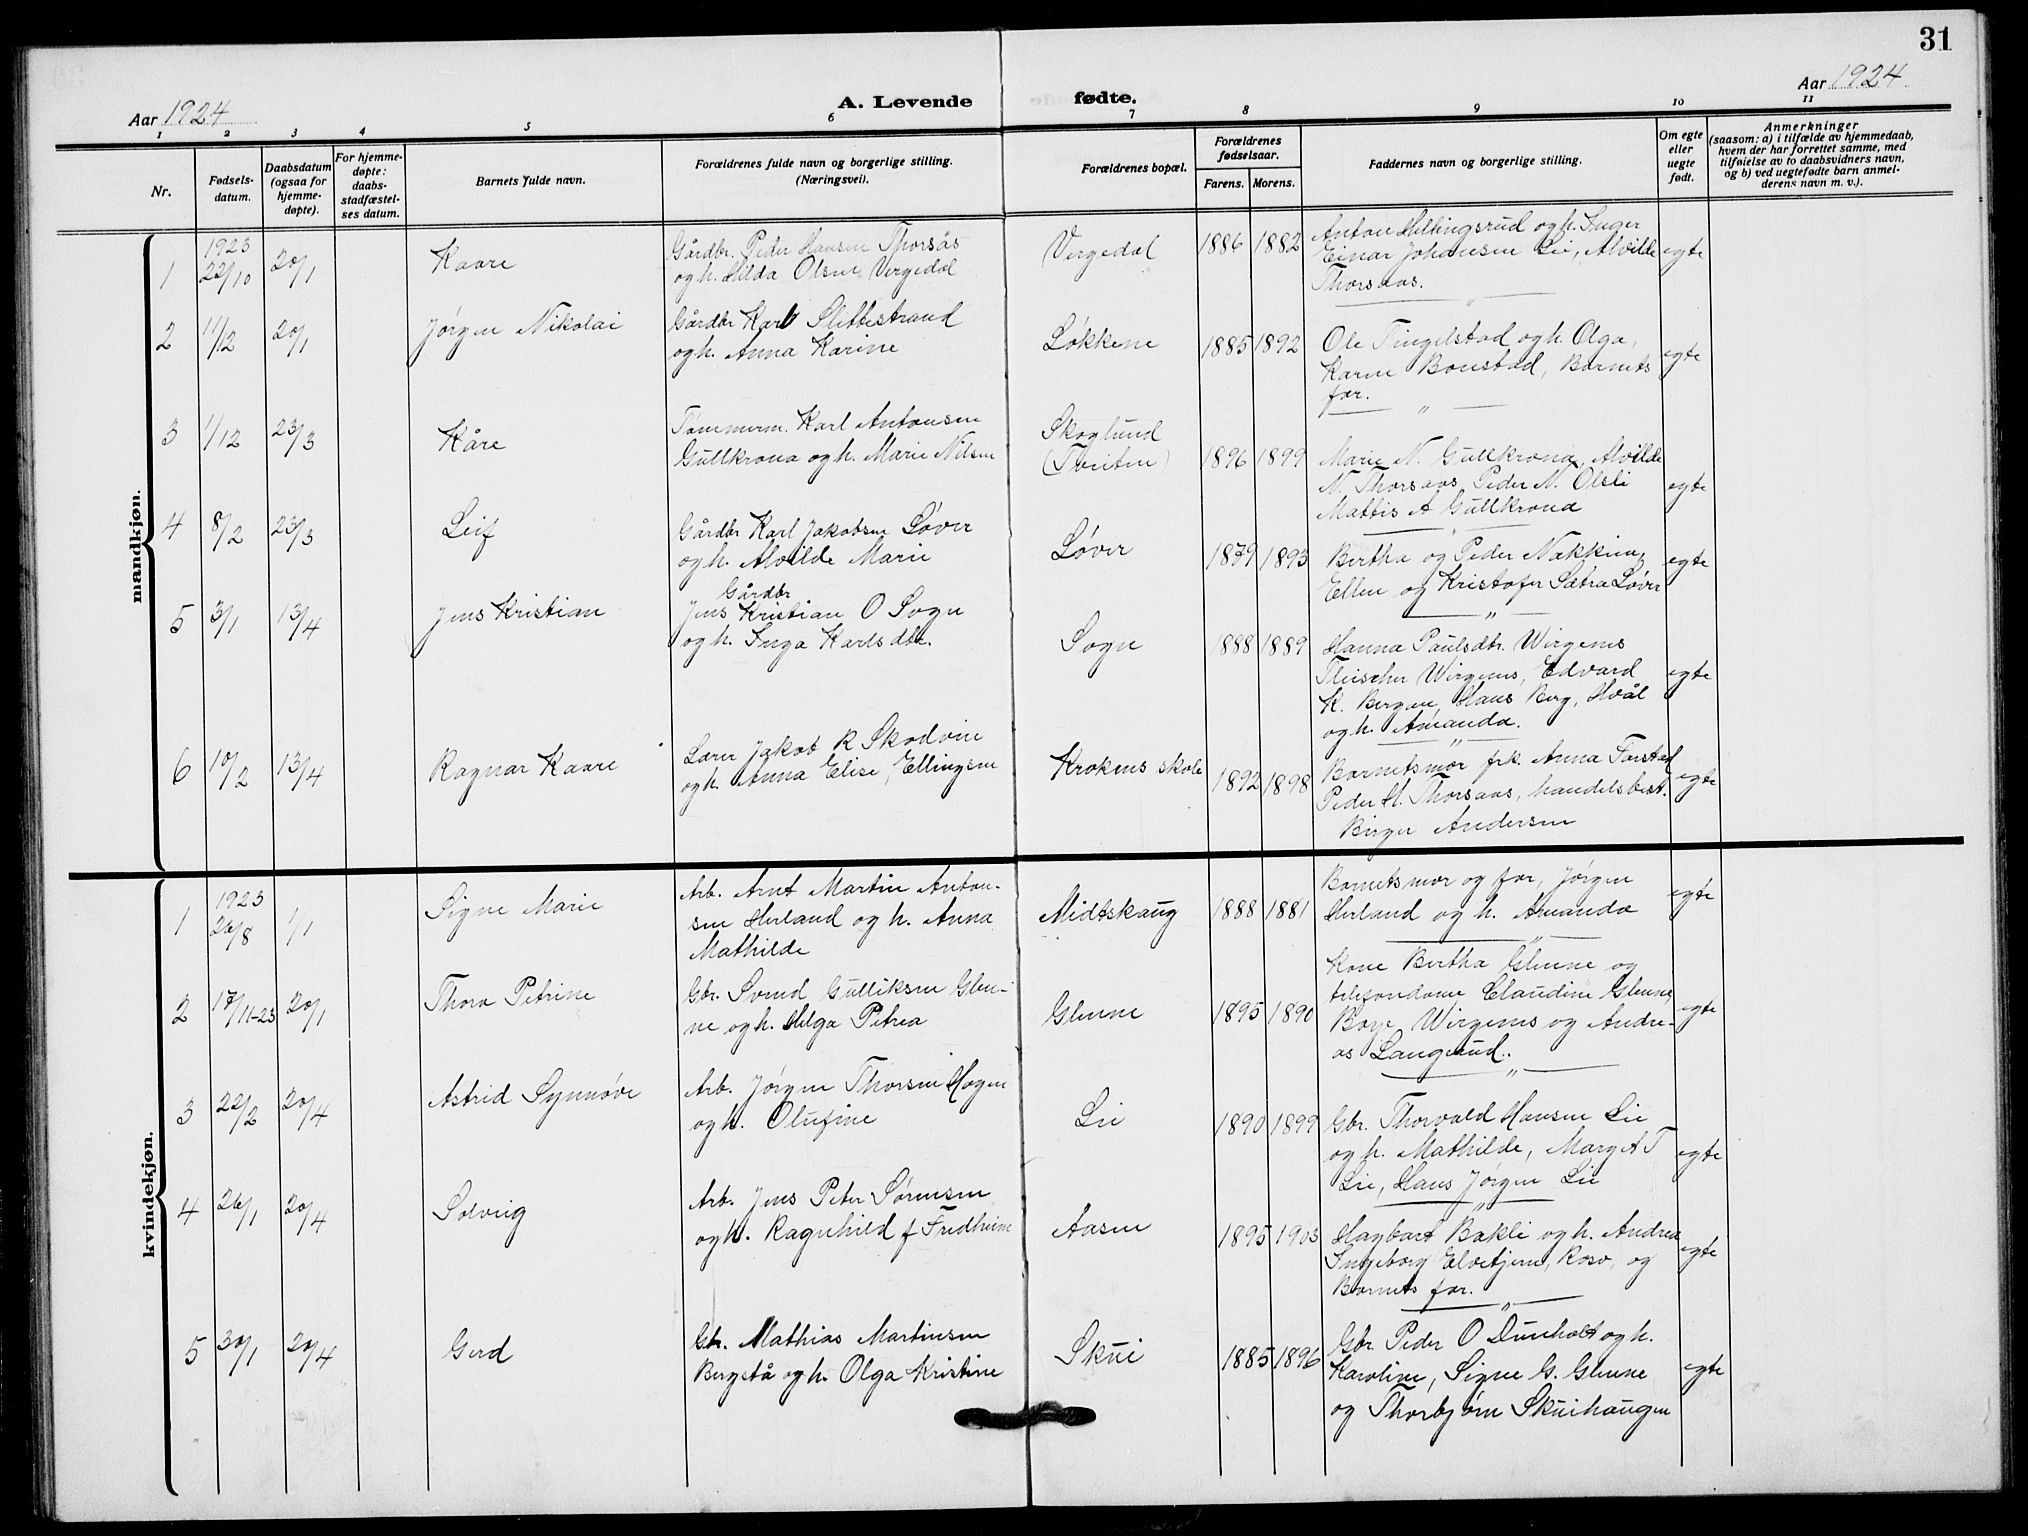 31
Aar 1924
A. Levende fødte.
Aar 1924
1 2 3 4 5 6 7 8 9 10 11
Nr.
Fødsels-
datum.
Daabsdatum
(ogsaa for
hjemme-
døpte).
For hjemme-
døpte:
daabs-
stadfæstel-
ses datum.
Barnets fulde navn.
Forældrenes fulde navn og borgerlige stilling.
(Næringsvei).
Forældrenes bopæl.
Forældrenes
fødselsaar.
Farens. Morens.
Faddernes navn og borgerlige stilling.
Om egte
eller
uegte
født.
Anmerkninger
(saasom: a) i tilfælde av hjemmedaab,
hvem der har forrettet samme, med
tilføielse av to daabsvidners navn,
og b) ved uegtefødte barn anmel-
derens navn m. v.).
mandkjøn.
1
1923
22/10
20/1
Kaare
Gårdbr. Peder Hansen Thorsås
og h. Hilda Olsen Vergedal
Vergedal
1886 1882
Anton Hellingsrud og h. Inger
Einar Johansen Lie, Alvilde
Thorsaas.
egte
2
11/12
20/1
Jørgen Nikolai
Gårdbr Karl Slettestrand
og h. Anna Karine
Løkkene
1885 1892
Ole Tingelstad og h. Olga,
Karen Bonstad, Barnets
far.
egte
3
1/12
23/3
Kåre
Tømmerm. Karl Antonsen
Gullkrona og h. Marie Nilsen
Skoglund
1896 1899
Marie N. Gullkrona, Alvilde
N. Thorsaas, Peder N. Olsli
Mattis A Gullkrona
egte
4
8/2
23/3
Leif
Gårdbr Karl Jakobsen Løver
og h. Alvilde Marie
Løver
1879 1893
Bertha og Peder Nækkien,
Ellen og Kristofer Sætra Løver
egte
5
3/1
13/4
Jens Kristian
Gårdbr
Jens Kristian O Sogn
og h. Inga Karlsdtr.
Sogn
1888 1889
Hanna Paulsdtr. Wirgenes
Fleischer Wirgenes, Edvard
K. Bergan, Hans Berg, Hvål
og h. Amanda.
egte
6
10/2
13/4
Ragnar Kaare
Lærer Jakob R Skodvin
og h. Anna Elise, Ellingsen
Krokens skole
1892 1898
Barnets mor frk. Anna Forstad
Peder H. Thorsaas, handelsbest.
Birger Andersen
egte
kvindekjøn.
1
1923
26/8
1/1
Signe Marie
Arb. Arnt Martin Anton-
sen Herland og h. Anna
Mathilde
Midtskaug
1888 1881
Barnets mor og far, Jørgen
Herland og h. Amanda
egte
2
17/11-23
20/1
Thora Petrine
Gbr. Svend Gulliksen Glen-
ne og h. Helga Petrea
Glenne
1895 1890
Kone Bertha Glenne og
telefondame Claudine Glenne,
Boye Wirgenes og Andre-
as Langerud.
egte
3
22/2
20/4
Astrid Synnøve
Arb. Jørgen Thorsen Hagen
og h. Olufine
Lie
1890 1899
Gbr. Thorvald Hansen Lie
og h. Mathilde, Margit T
Lie, Hans Jørgen Lie
egte
4
26/1
20/4
Solveig
Arb. Jens Peter Sørensen
og h. Ragnhild f Fredheim
Aasen
1895 1903
Hagbart Bakli og h. Andrea
Ingeborg Elvetjern, Roso, og
Barnets far.
egte
5
30/1
20/4
Gerd
Gbr. Mathias Martinsen
Bergstå og h. Olga Kristine
Skui
1885 1896
Gbr. Peder O Dunholt og h.
Karoline, Signe G. Glenne
og Thorbjørn Skuihaugen
egte